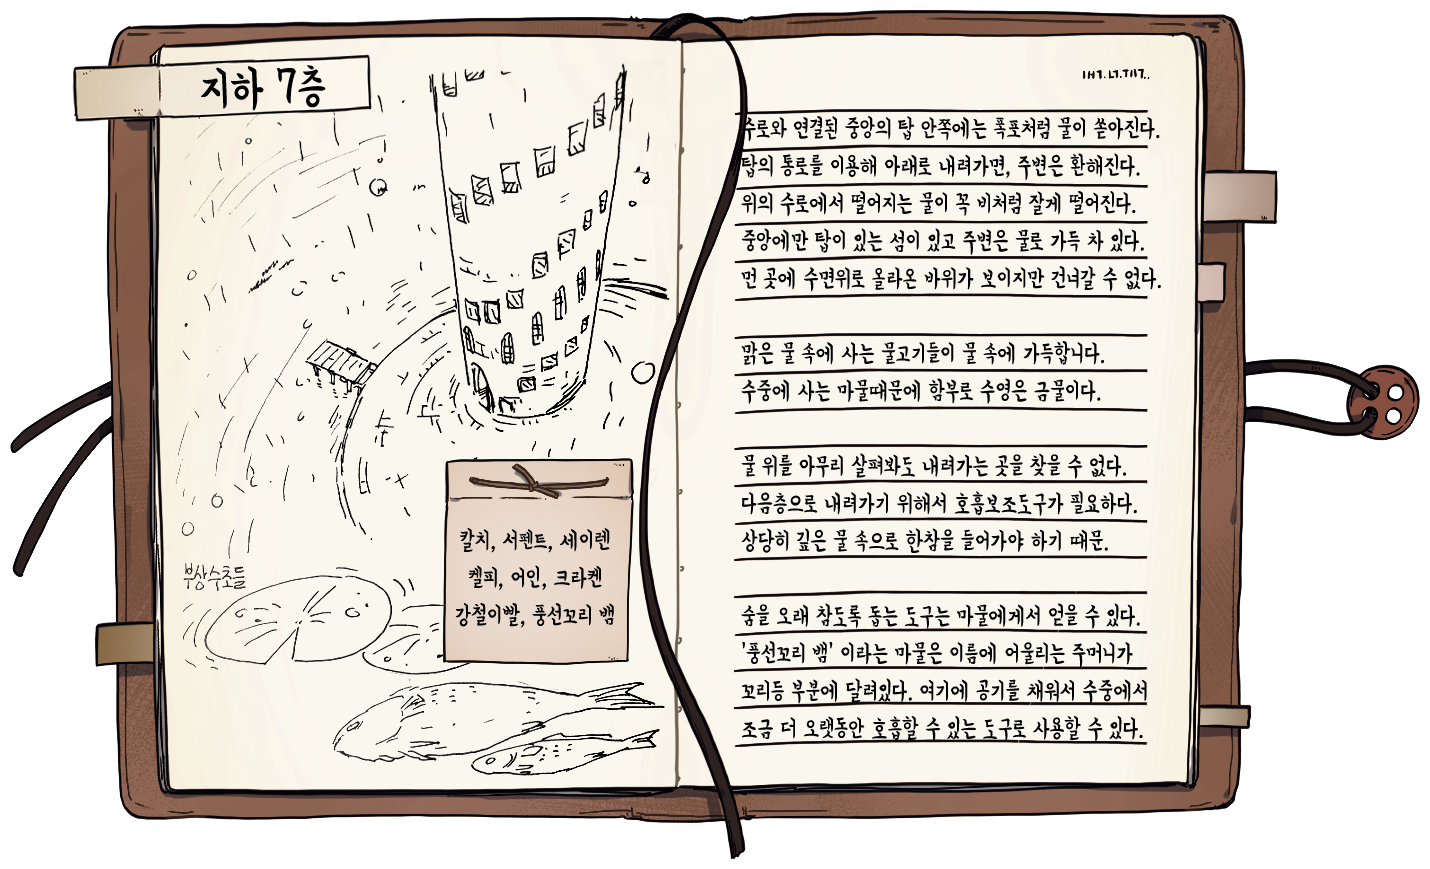 지하 7층
부상수초들
칼치, 서펜트, 세이렌
켈피, 어인, 크라켄
강철이빨, 풍선꼬리 뱀
수로와 연결된 중앙의 탑 안쪽에는 폭포처럼 물이 쏟아진다.
탑의 통로를 이용해 아래로 내려가면, 주변은 환해진다.
위의 수로에서 떨어지는 물이 꼭 비처럼 잘게 떨어진다.
중앙에만 탑이 있는 섬이 있고 주변은 물로 가득 차 있다.
먼 곳에 수면위로 올라온 바위가 보이지만 건너갈 수 없다.
맑은 물 속에 사는 물고기들이 물 속에 가득합니다.
수중에 사는 마물때문에 함부로 수영은 금물이다.
물 위를 아무리 살펴봐도 내려가는 곳을 찾을 수 없다.
다음층으로 내려가기 위해서 호흡보조도구가 필요하다.
상당히 깊은 물 속으로 한참을 들어가야 하기 때문.
숨을 오래 참도록 돕는 도구는 마물에게서 얻을 수 있다.
'풍선꼬리 뱀' 이라는 마물은 이름에 어울리는 주머니가
꼬리등 부분에 달려있다. 여기에 공기를 채워서 수중에서
조금 더 오랫동안 호흡할 수 있는 도구로 사용할 수 있다.